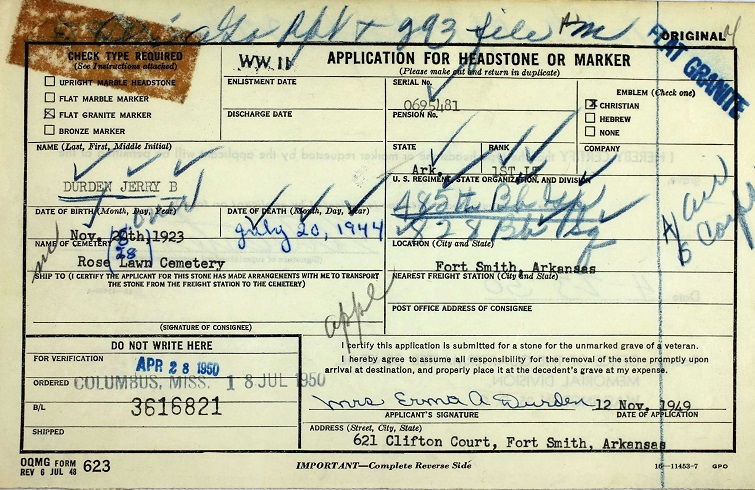 ORIGINAL
FLAT GRANITE
CHECK TYPE REQUIRED
(See Instructions attached)
☐ UPRIGHT MARBLE HEADSTONE
☐ FLAT MARBLE MARKER
☒ FLAT GRANITE MARKER
☐ BRONZE MARKER
WW II
APPLICATION FOR HEADSTONE OR MARKER
(Please make out and return in duplicate)
ENLISTMENT DATE
DISCHARGE DATE
SERIAL No.
0695481
PENSION No.
EMBLEM (Check one)
☒ CHRISTIAN
☐ HEBREW
☐ NONE
NAME (Last, First, Middle Initial)
DURDEN JERRY B
STATE
Ark.
RANK
1ST LT
COMPANY
U. S. REGIMENT, STATE ORGANIZATION, AND DIVISION
485th Bb Gp
828 Bb Sq
DATE OF BIRTH (Month, Day, Year)
Nov. 28th, 1923
28
DATE OF DEATH (Month, Day, Year)
July 20, 1944
NAME OF CEMETERY
Rose Lawn Cemetery
LOCATION (City and State)
Fort Smith, Arkansas
SHIP TO (I CERTIFY THE APPLICANT FOR THIS STONE HAS MADE ARRANGEMENTS WITH ME TO TRANSPORT
THE STONE FROM THE FREIGHT STATION TO THE CEMETERY)
NEAREST FREIGHT STATION (City and State)
POST OFFICE ADDRESS OF CONSIGNEE
appl
(SIGNATURE OF CONSIGNEE)
DO NOT WRITE HERE
FOR VERIFICATION
APR 28 1950
ORDERED
COLUMBUS, MISS. 18 JUL 1950
B/L
3616821
SHIPPED
I certify this application is submitted for a stone for the unmarked grave of a veteran.
I hereby agree to assume all responsibility for the removal of the stone promptly upon
arrival at destination, and properly place it at the decedent's grave at my expense.
Mrs Erma A. Durden 12 Nov, 1949
APPLICANT'S SIGNATURE DATE OF APPLICATION
ADDRESS (Street, City, State)
621 Clifton Court, Fort Smith, Arkansas
OQMG FORM 623
REV 6 JUL 48
IMPORTANT—Complete Reverse Side
16—11453-7 GPO